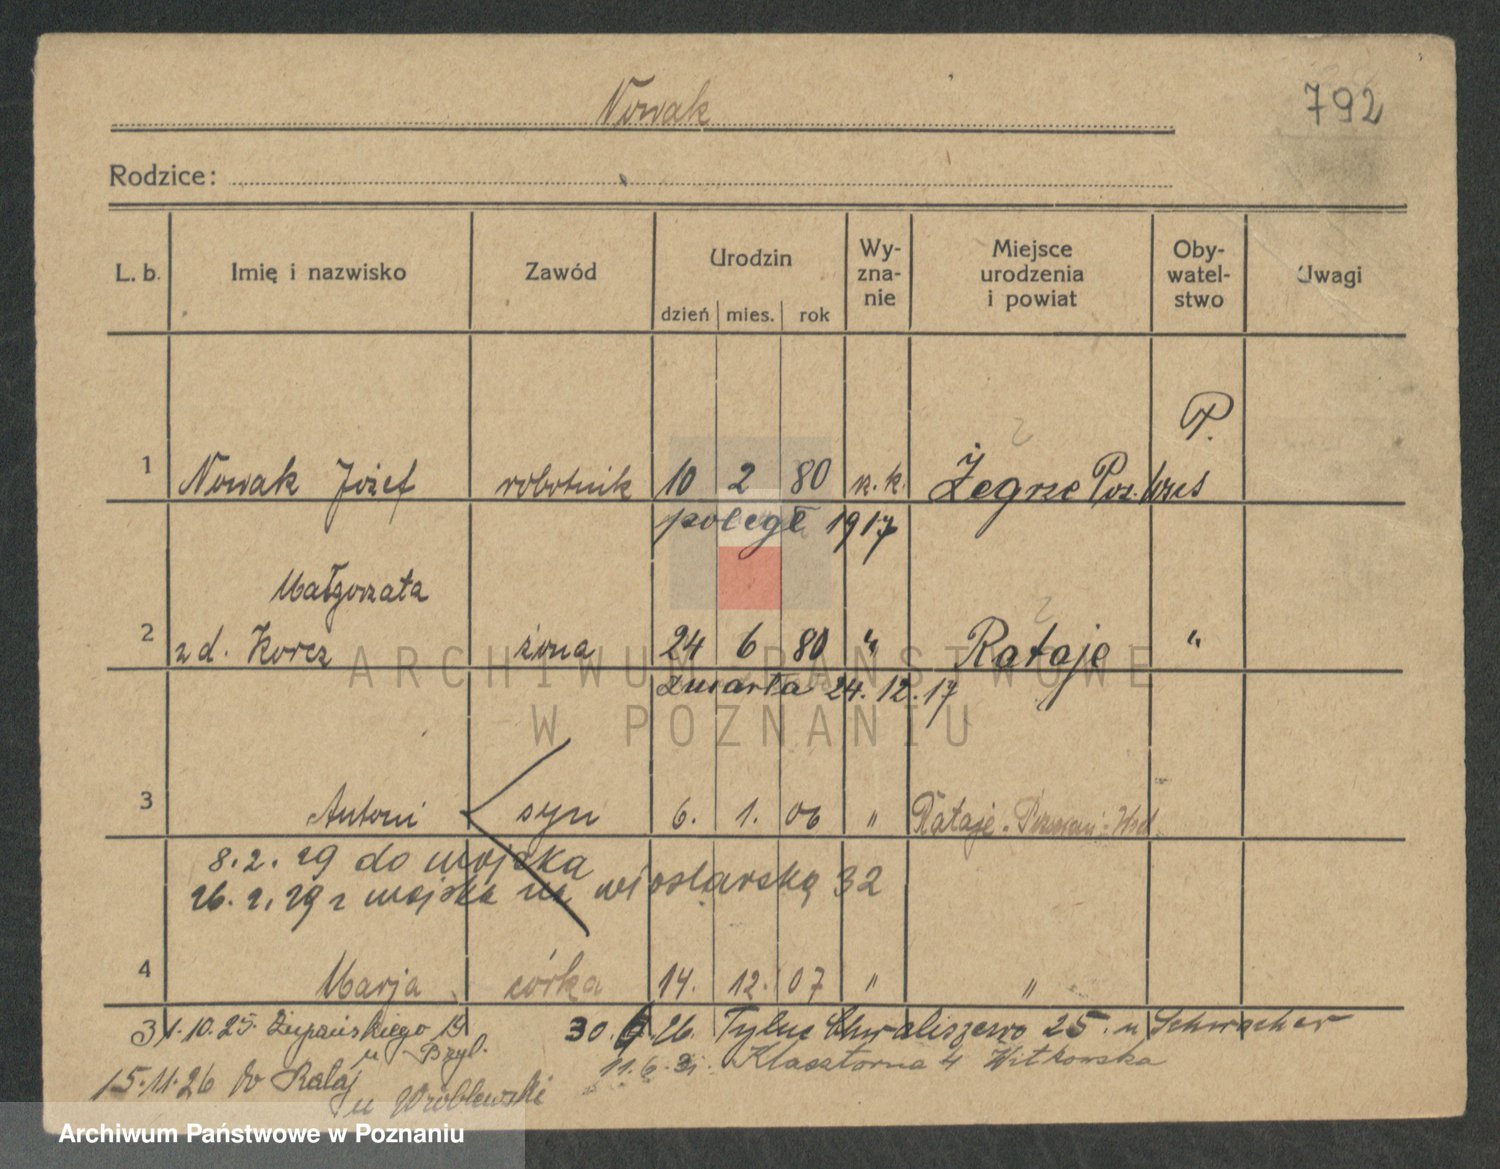 Nowak
792
Rodzice:
L. b. Imię i nazwisko Zawód Urodzin dzień mies. rok Wy-zna-nie Miejsce urodzenia i powiat Oby-watel-stwo Uwagi
P.
1 Nowak Józef robotnik 10 2 80 k. k. Żegrze Poz.
poległ 1917
Małgorzata
2 z d. Korcz żona 24 6 80 " Rataje "
zmarła 24.12.17
3 Antoni syn 6. 1. 06 " Rataje - Poznań - Wsd
8.2.29 do wojska
26.2.29 z wojska na wioślarską 32
4 Marja córka 14. 12. 07 " "
31.10.25. Żupańskiego 19 30.6.26. Tylne Chwaliszewo 25. u Schwacher
u Bzyl. 11.6.31. Klasztorna 4 Witkowska
15.11.26 do Rataj
u Wróblewski
ARCHIWUM PAŃSTWOWE
W POZNANIU
Archiwum Państwowe w Poznaniu